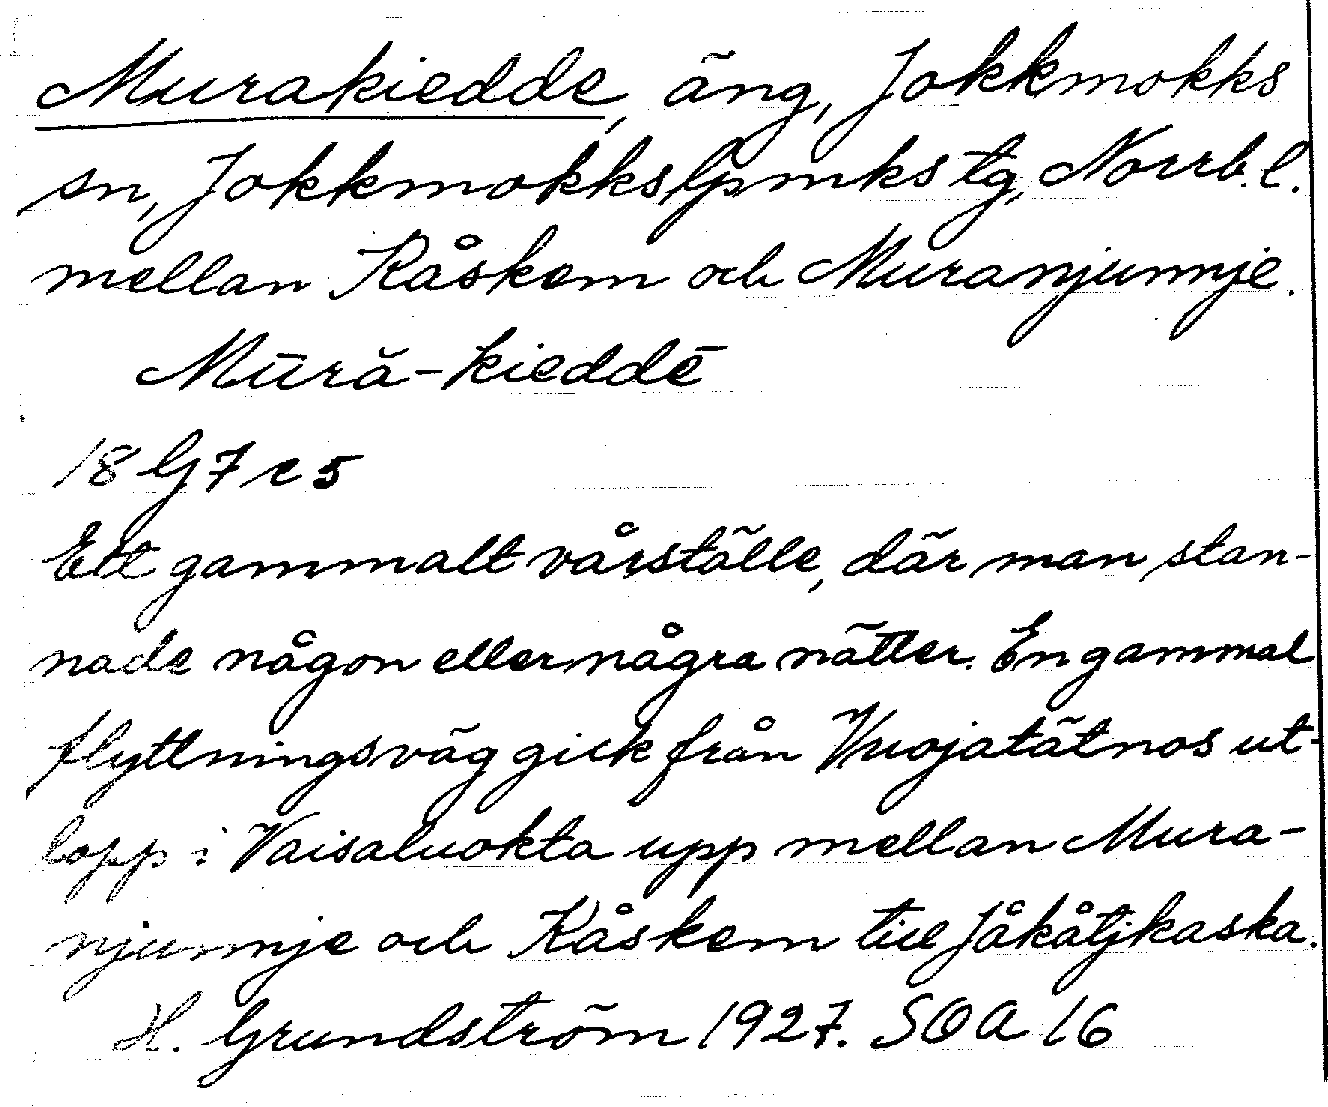 Murakiedde, äng, Jokkmokks
sn, Jokkmokks lpmks tg, Norrb. l.
mellan Kåskem och Muranjunnje.
Mūră-kieddē
18 G 7 e 5
Ett gammalt vårställe, där man stan-
nade någon eller några nätter. En gammal
flyttningsväg gick från Vuojatätnos ut-
lopp i Vaisaluokta upp mellan Mura-
njunnje och Kåskem till Jåkåtjkaska.
H. Grundström 1927. SOA 16